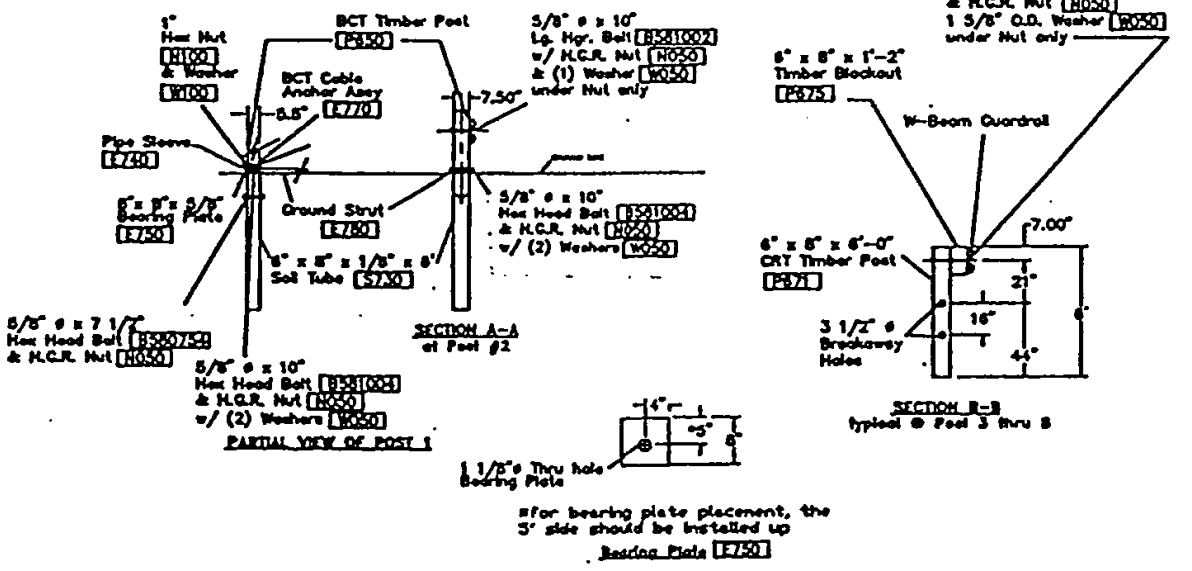 1"
Hex Nut
N100
& Washer
W100
BCT Timber Post
P650
BCT Cable
Anchor Assy
E770
5.5"
Pipe Sleeve
E740
8" x 8" x 5/8"
Bearing Plate
E750
Ground Strut
E780
6" x 8" x 1/8" x 6'
Soil Tube S730
5/8" ø x 7 1/2"
Hex Head Bolt B580754
& H.G.R. Nut N050
5/8" ø x 10"
Hex Head Bolt B581004
& H.G.R. Nut N050
w/ (2) Washers W050
PARTIAL VIEW OF POST 1
5/8" ø x 10"
Lg. Hgr. Bolt B581002
w/ H.G.R. Nut N050
& (1) Washer W050
under Nut only
7.50"
5/8" ø x 10"
Hex Head Bolt B581004
& H.G.R. Nut N050
w/ (2) Washers W050
SECTION A-A
at Post #2
& H.G.R. Nut N050
1 5/8" O.D. Washer W050
under Nut only
6" x 8" x 1'-2"
Timber Blockout
P675
W-Beam Guardrail
6" x 8" x 6'-0"
CRT Timber Post
P671
3 1/2" ø
Breakaway
Holes
7.00"
21"
16"
44"
6'
SECTION B-B
typical @ Post 3 thru 8
4"
*5"
8"
1 1/8" ø Thru hole
Bearing Plate
*for bearing plate placement, the
5" side should be installed up
Bearing Plate E750